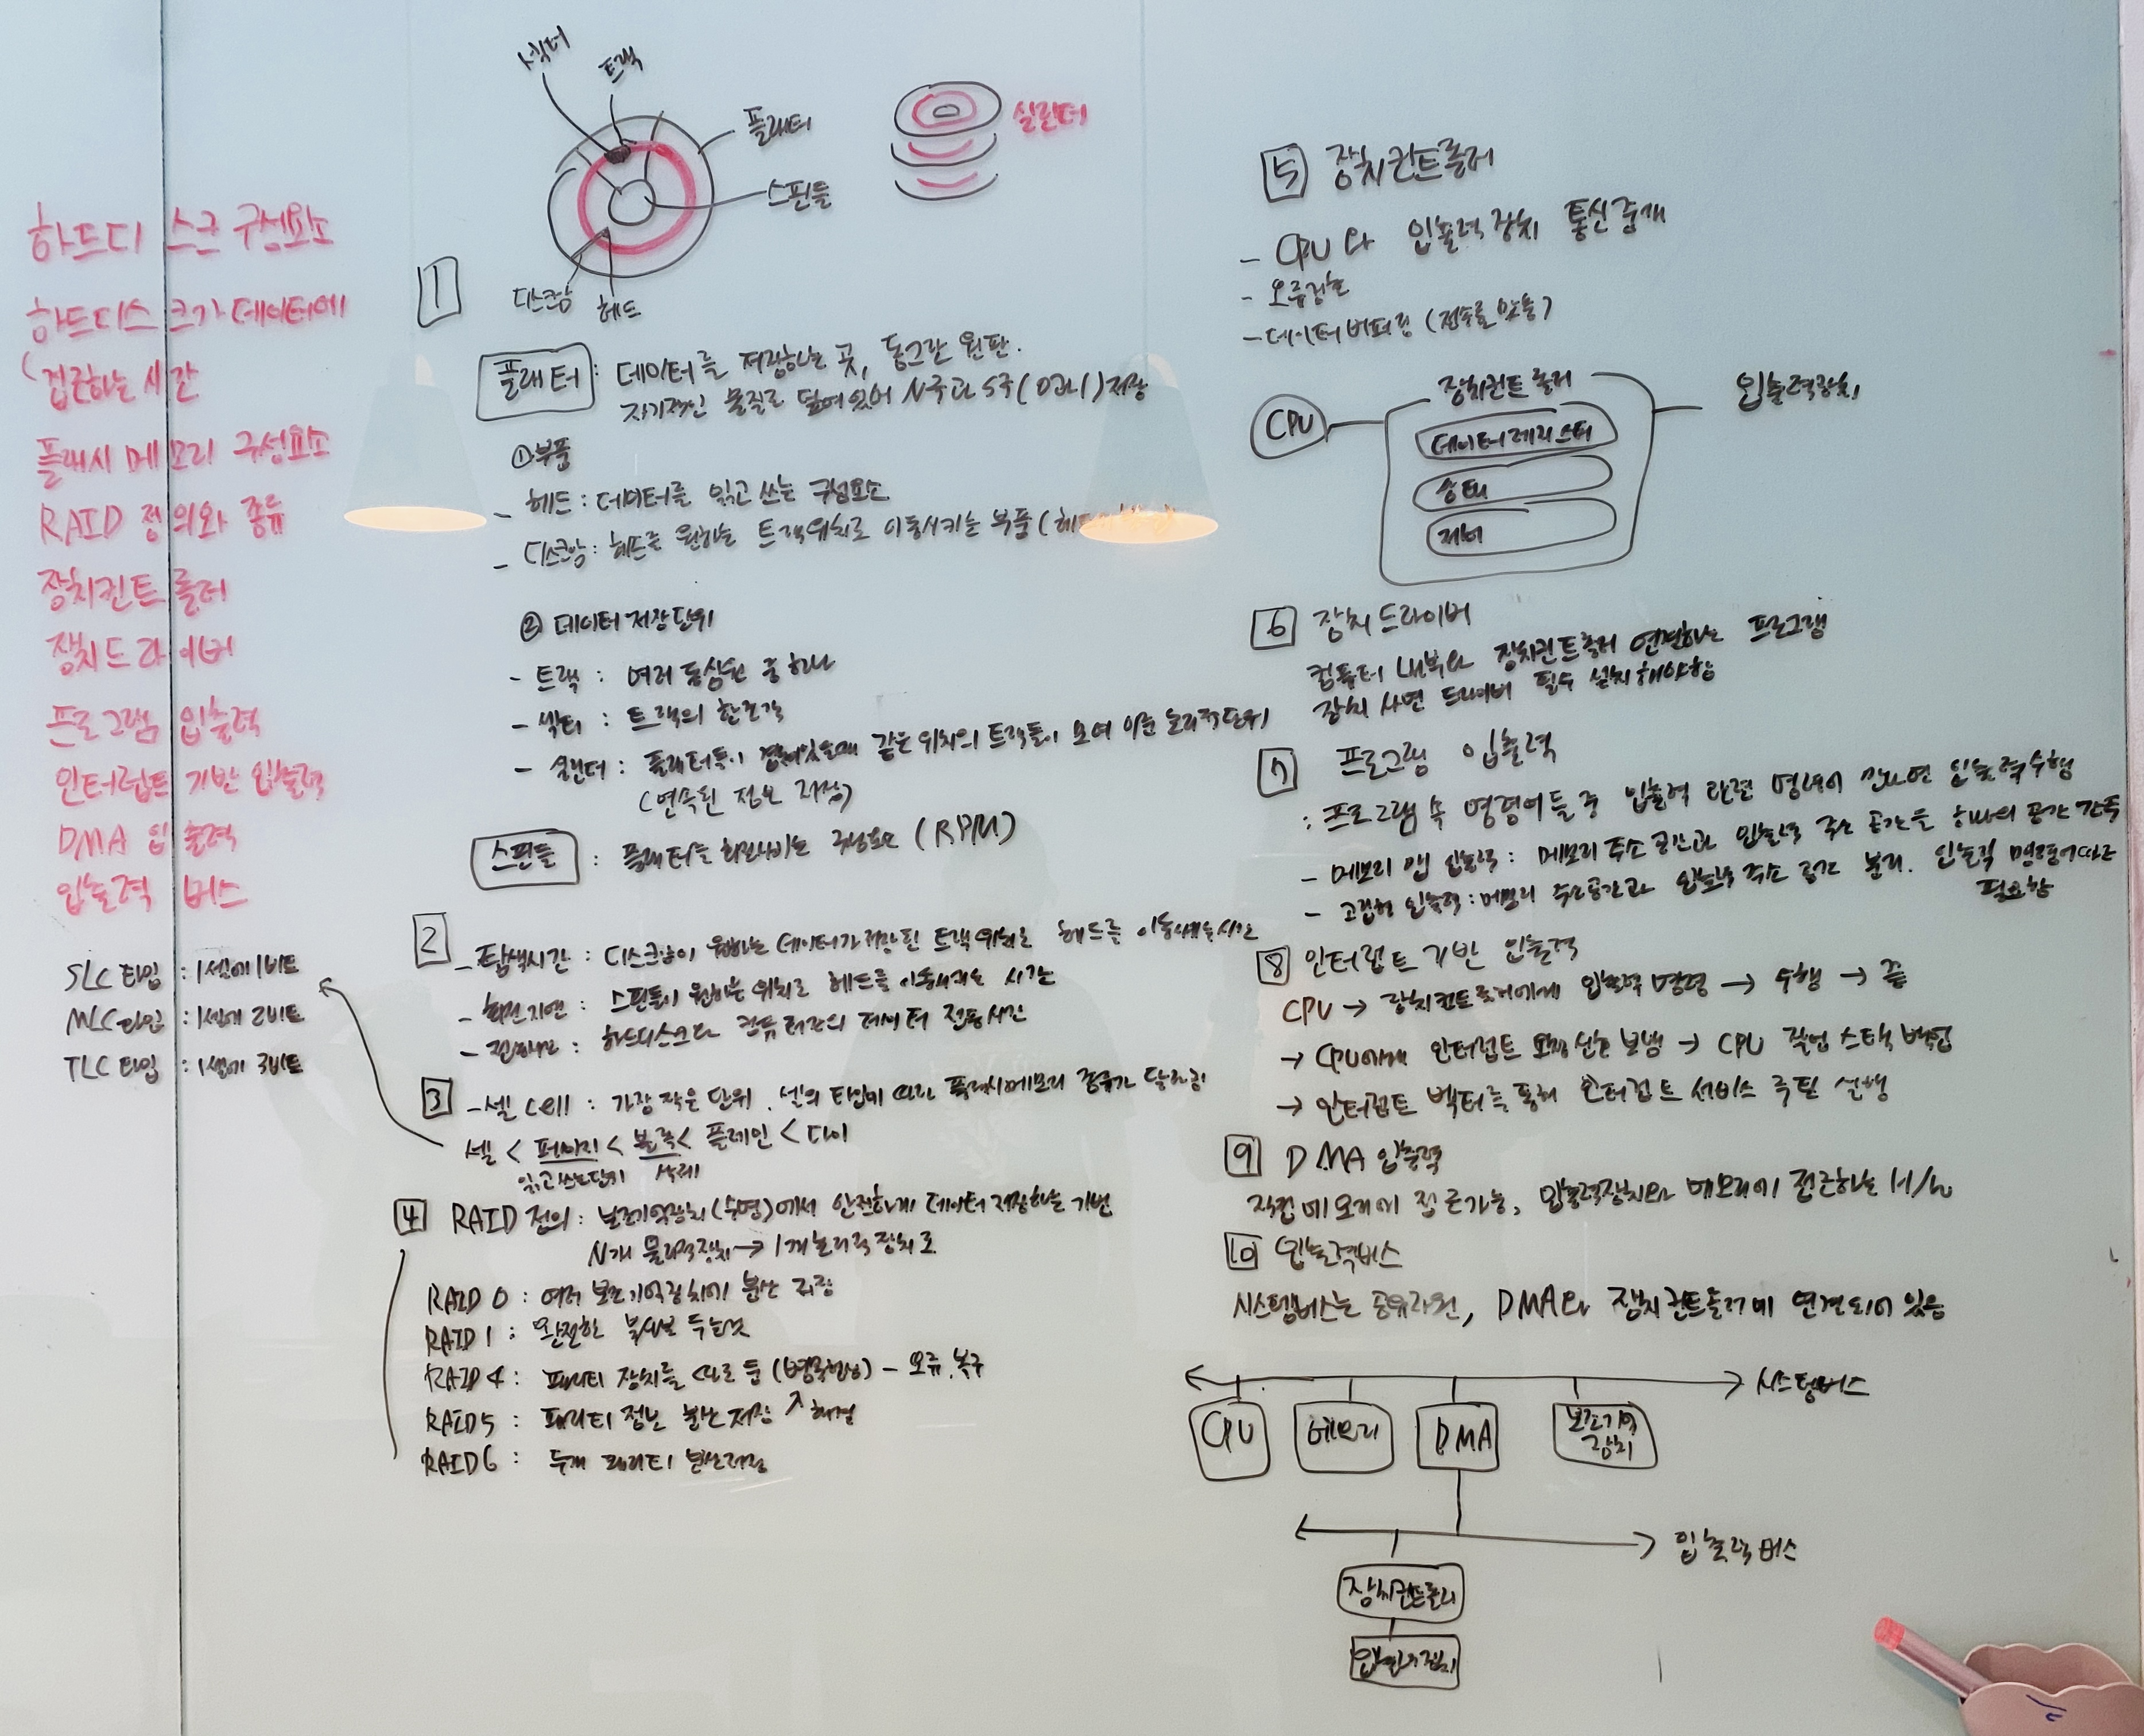 하드디스크 구성요소
하드디스크가 데이터에
접근하는 시간
플래시 메모리 구성요소
RAID 정의와 종류
장치컨트롤러
장치드라이버
프로그램 입출력
인터럽트 기반 입출력
DMA 입출력
입출력 버스
SLC 타입 : 1셀에 1비트
MLC 타입 : 1셀에 2비트
TLC 타입 : 1셀에 3비트
섹터
트랙
플래터
스핀들
디스크암
헤드
실린더
1
플래터 : 데이터를 저장하는 곳, 동그란 원판.
자기적인 물질로 덮여있어 N극과 S극(0과1) 저장
① 부품
- 헤드 : 데이터를 읽고 쓰는 구성요소
- 디스크암 : 헤드를 원하는 트랙위치로 이동시키는 부품
② 데이터 저장단위
- 트랙 : 여러 동심원 중 하나
- 섹터 : 트랙의 한조각
- 실린더 : 플래터들이 겹쳐있을때 같은 위치의 트랙들이 모여 이룬 논리적단위
(연속된 정보 저장)
스핀들 : 플래터를 회전시키는 구성요소 (RPM)
2
- 탐색시간 : 디스크암이 원하는 데이터가 저장된 트랙위치로 헤드를 이동시키는 시간
- 회전지연 : 스핀들이 원하는 위치로 헤드를 이동시키는 시간
- 전송시간 : 하드디스크와 컴퓨터간의 데이터 전송시간
3 - 셀 cell : 가장 작은 단위. 셀의 타입에 따라 플래시메모리 종류가 달라짐
셀 < 페이지 < 블록 < 플레인 < 다이
읽고쓰는단위 삭제
4 RAID 정의 : 보조기억장치(수명)에서 안전하게 데이터 저장하는 기법
N개 물리적장치 → 1개 논리적 장치로
RAID 0 : 여러 보조기억장치에 분산 저장
RAID 1 : 완전한 복사본 두는것
RAID 4 : 패리티 장치를 따로 둠 (병목현상) - 오류.복구
RAID 5 : 패리티 정보 분산저장 ↗ 해결
RAID 6 : 두개 패리티 분산저장
5 장치컨트롤러
- CPU와 입출력장치 통신중개
- 오류검출
- 데이터 버퍼링 (전송률 맞춤)
CPU
장치컨트롤러
데이터레지스터
상태
제어
입출력장치
6 장치드라이버
컴퓨터 내부와 장치컨트롤러 연결하는 프로그램
장치 사면 드라이버 필수 설치해야함
7 프로그램 입출력
: 프로그램 속 명령어들 중 입출력 관련 명령어 만나면 입출력수행
- 메모리 맵 입출력 : 메모리 주소 공간과 입출력 주소 공간을 하나의 공간 간주
- 고립형 입출력 : 메모리 주소공간과 입출력 주소 공간 분리. 입출력 명령어 따로
필요함
8 인터럽트 기반 입출력
CPU → 장치컨트롤러에게 입출력 명령 → 수행 → 끝
→ CPU에게 인터럽트 요청 신호 보냄 → CPU 작업 스택 백업
→ 인터럽트 벡터를 통해 인터럽트 서비스 루틴 실행
9 DMA 입출력
직접 메모리에 접근가능, 입출력장치와 메모리에 접근하는 H/W
10 입출력버스
시스템버스는 공유자원, DMA와 장치컨트롤러에 연결되어 있음
시스템버스
CPU
메모리
DMA
보조기억
장치
입출력 버스
장치컨트롤러
입출력장치